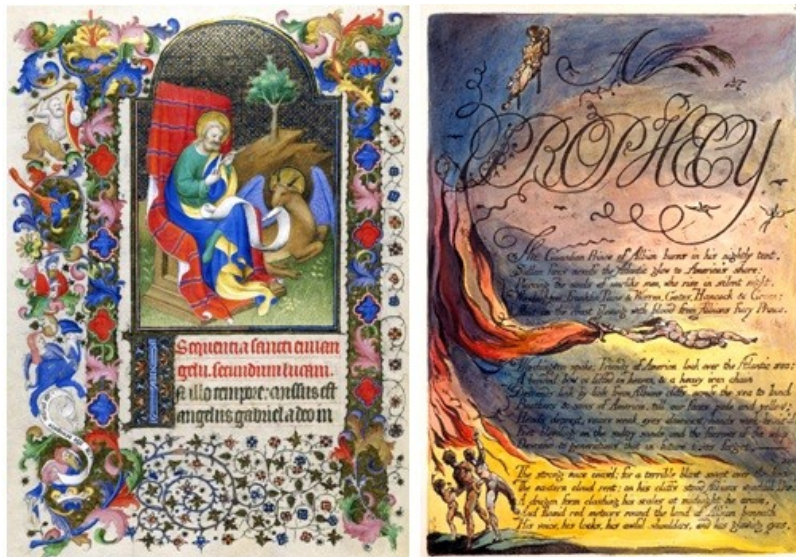 Sequentia sancti euuan
gelii. secundum lucam.
In illo tempore: missus est
angelus gabriel a deo in
A
PROPHECY
The Guardian Prince of Albion burns in his nightly tent,
Sullen fires across the Atlantic glow to America's shore:
Piercing the souls of warlike men, who rise in silent night,
Washington, Franklin, Paine & Warren, Gates, Hancock & Green;
Meet on the coast glowing with blood from Albions fiery Prince.
Washington spoke; Friends of America look over the Atlantic sea;
A bended bow is lifted in heaven, & a heavy iron chain
Descends link by link from Albions cliffs across the sea to bind
Brothers & sons of America, till our faces pale and yellow;
Heads deprest, voices weak, eyes downcast, hands work-bruis'd,
Feet bleeding on the sultry sands, and the furrows of the whip
Descend to generations that in future times forget.
The strong voice ceas'd; for a terrible blast swept over the heaving sea;
The eastern cloud rent; on his cliffs stood Albions wrathful Prince
A dragon form clashing his scales at midnight he arose,
And flam'd red meteors round the land of Albion beneath
His voice, his locks, his awful shoulders, and his glowing eyes,